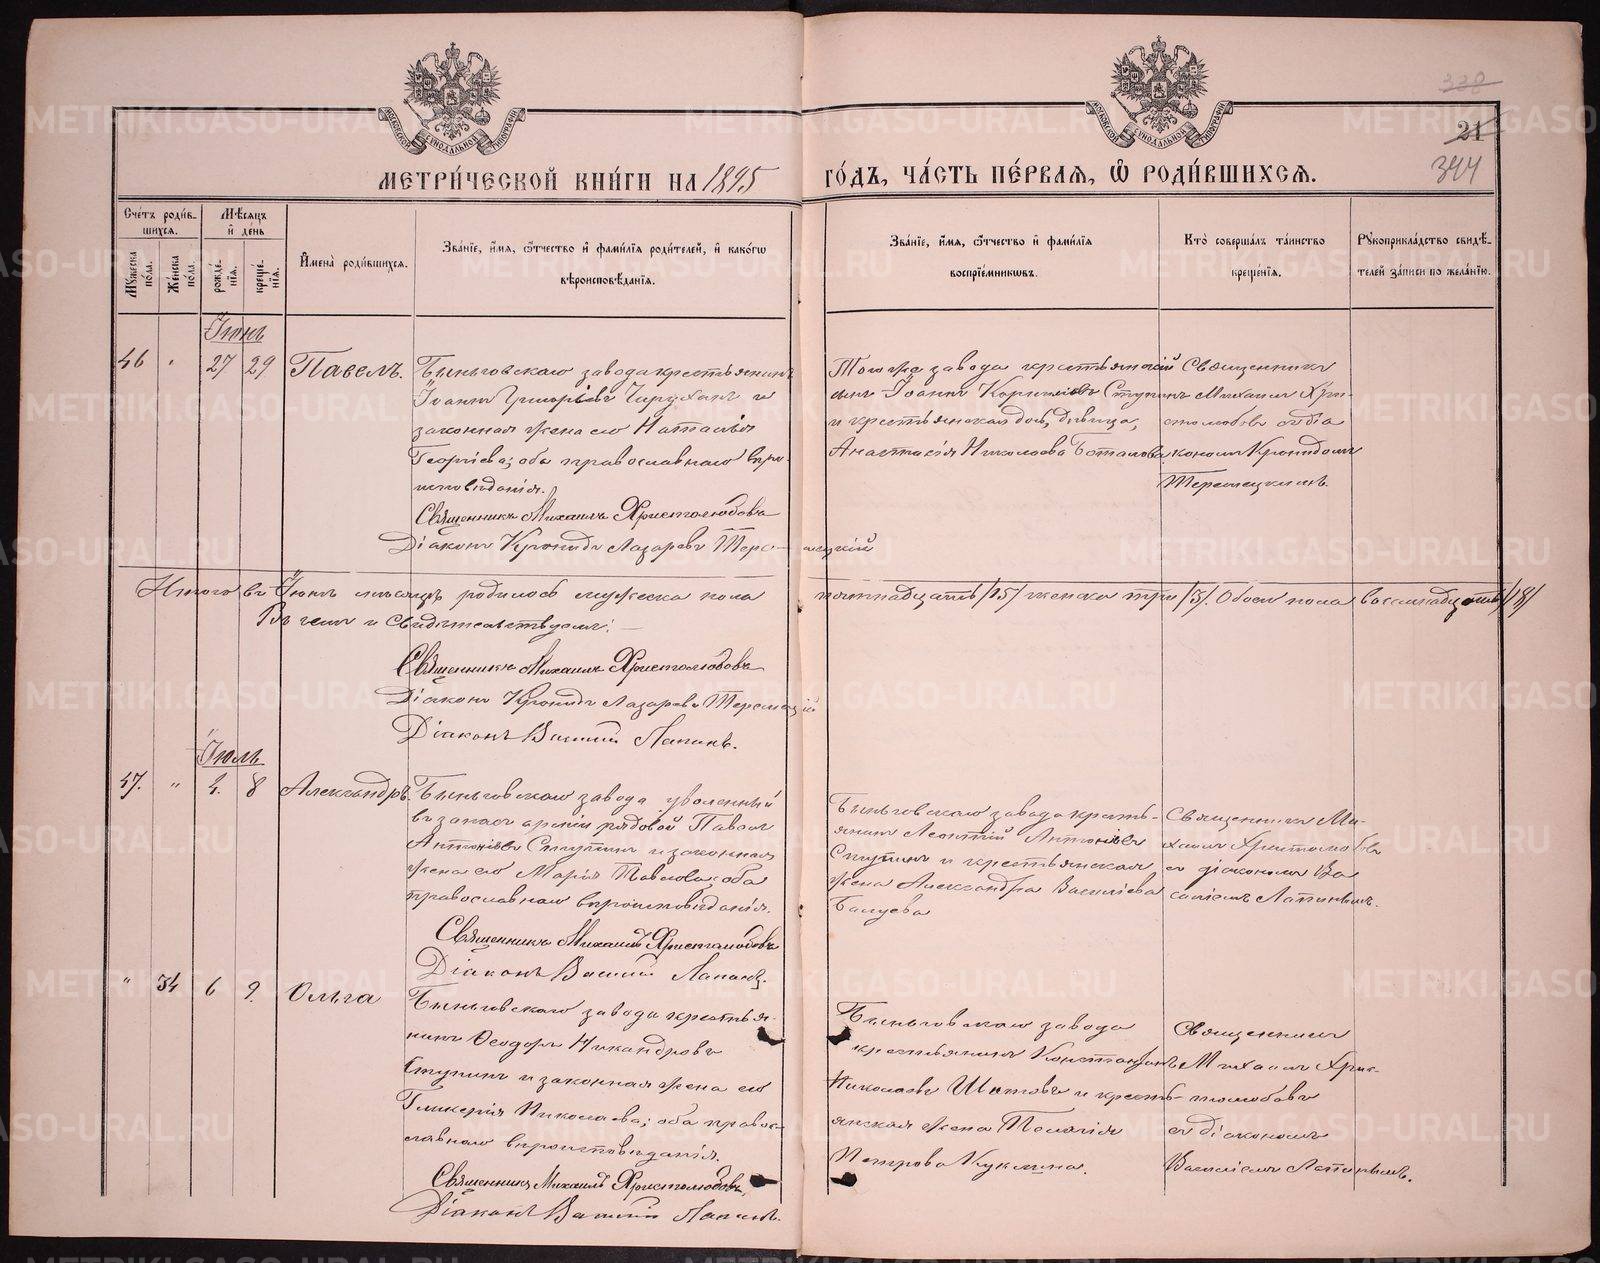 328
21
344
МЕТРИ́ЧЕСКОЙ КНИ́ГИ НА 1895 ГО́ДЪ, ЧА́СТЬ ПЕ́РВАЯ, Ѡ РОДИ́ВШИХСЯ.
Сче́тъ роди́в-
шихся.
Мѣ́сяцъ
и́ де́нь
Мꙋ́жеска по́ла.
Же́нска по́ла.
рожде́нїя.
креще́нїя.
И҆мена̀ роди́вшихся.
Зва́нїе, и҆́мя, ѻ҆́тчество и҆ фами́лїя роди́телей, и҆ како́гѡ
вѣроисповѣ́данїя.
Зва́нїе, и҆́мя, ѻ҆́тчество и҆ фами́лїя
воспрїе́мникѡвъ.
Кто̀ соверша́лъ та́инство
креще́нїя.
Рꙋкоприкла́дство свидѣ́-
телей за́писи по жела́нїю.
Іюнь
46 " 27 29 Павелъ.
Быньговскаго завода крестьянинъ
Іоаннъ Григоріевъ и
законная жена его Наталія
Георгіева; оба православнаго вѣро-
исповѣданія.
Священникъ Михаилъ Христолюбовъ
Діаконъ Кронидъ Лазаревъ Теремецкій
Того же завода крестьянскій
сынъ Іоаннъ Корниліевъ Ступинъ
и крестьянская дочь, дѣвица,
Анастасія Николаева
Священникъ
Михаилъ Хри-
столюбовъ съ діа
кономъ Кронидомъ
Теремецкимъ.
Итого въ Іюнѣ мѣсяцѣ родилось мужеска пола пятнадцать /15/ женска три /3/. Обоего пола восемнадцать /18/
Въ чемъ и свидѣтельствуемъ:
Священникъ Михаилъ Христолюбовъ
Діаконъ Кронидъ Лазаревъ Теремецкій
Діаконъ Василій Лапинъ.
Іюль
47. " 4. 8 Александръ.
Быньговскаго завода уволенный
въ запасъ арміи рядовой Павелъ
Антоніевъ Ступинъ и законная
жена его Марія Павлова; оба
православнаго вѣроисповѣданія.
Священникъ Михаилъ Христолюбовъ
Діаконъ Василій Лапинъ.
Быньговскаго завода кресть-
янинъ Леонтій Антоніевъ
Ступинъ и крестьянская
жена Александра Василіева
Священникъ Ми-
хаилъ Христолюбовъ
съ діакономъ Ва
силіемъ Лапинымъ.
" 34 6 9. Ольга
Быньговскаго завода крестья-
нинъ Ѳеодоръ Никандровъ
Ступинъ и законная жена его
Гликерія Николаева; оба право-
славнаго вѣроисповѣданія.
Священникъ Михаилъ Христолюбовъ,
Діаконъ Василій Лапинъ.
Быньговскаго завода
крестьянинъ Константинъ
Николаевъ и кресть-
янская жена Пелагія
Петрова Куклина.
Священникъ
Михаилъ Хрис-
толюбовъ
съ діакономъ
Василіемъ Лапинымъ.
METRIKI.GASO-URAL.RU